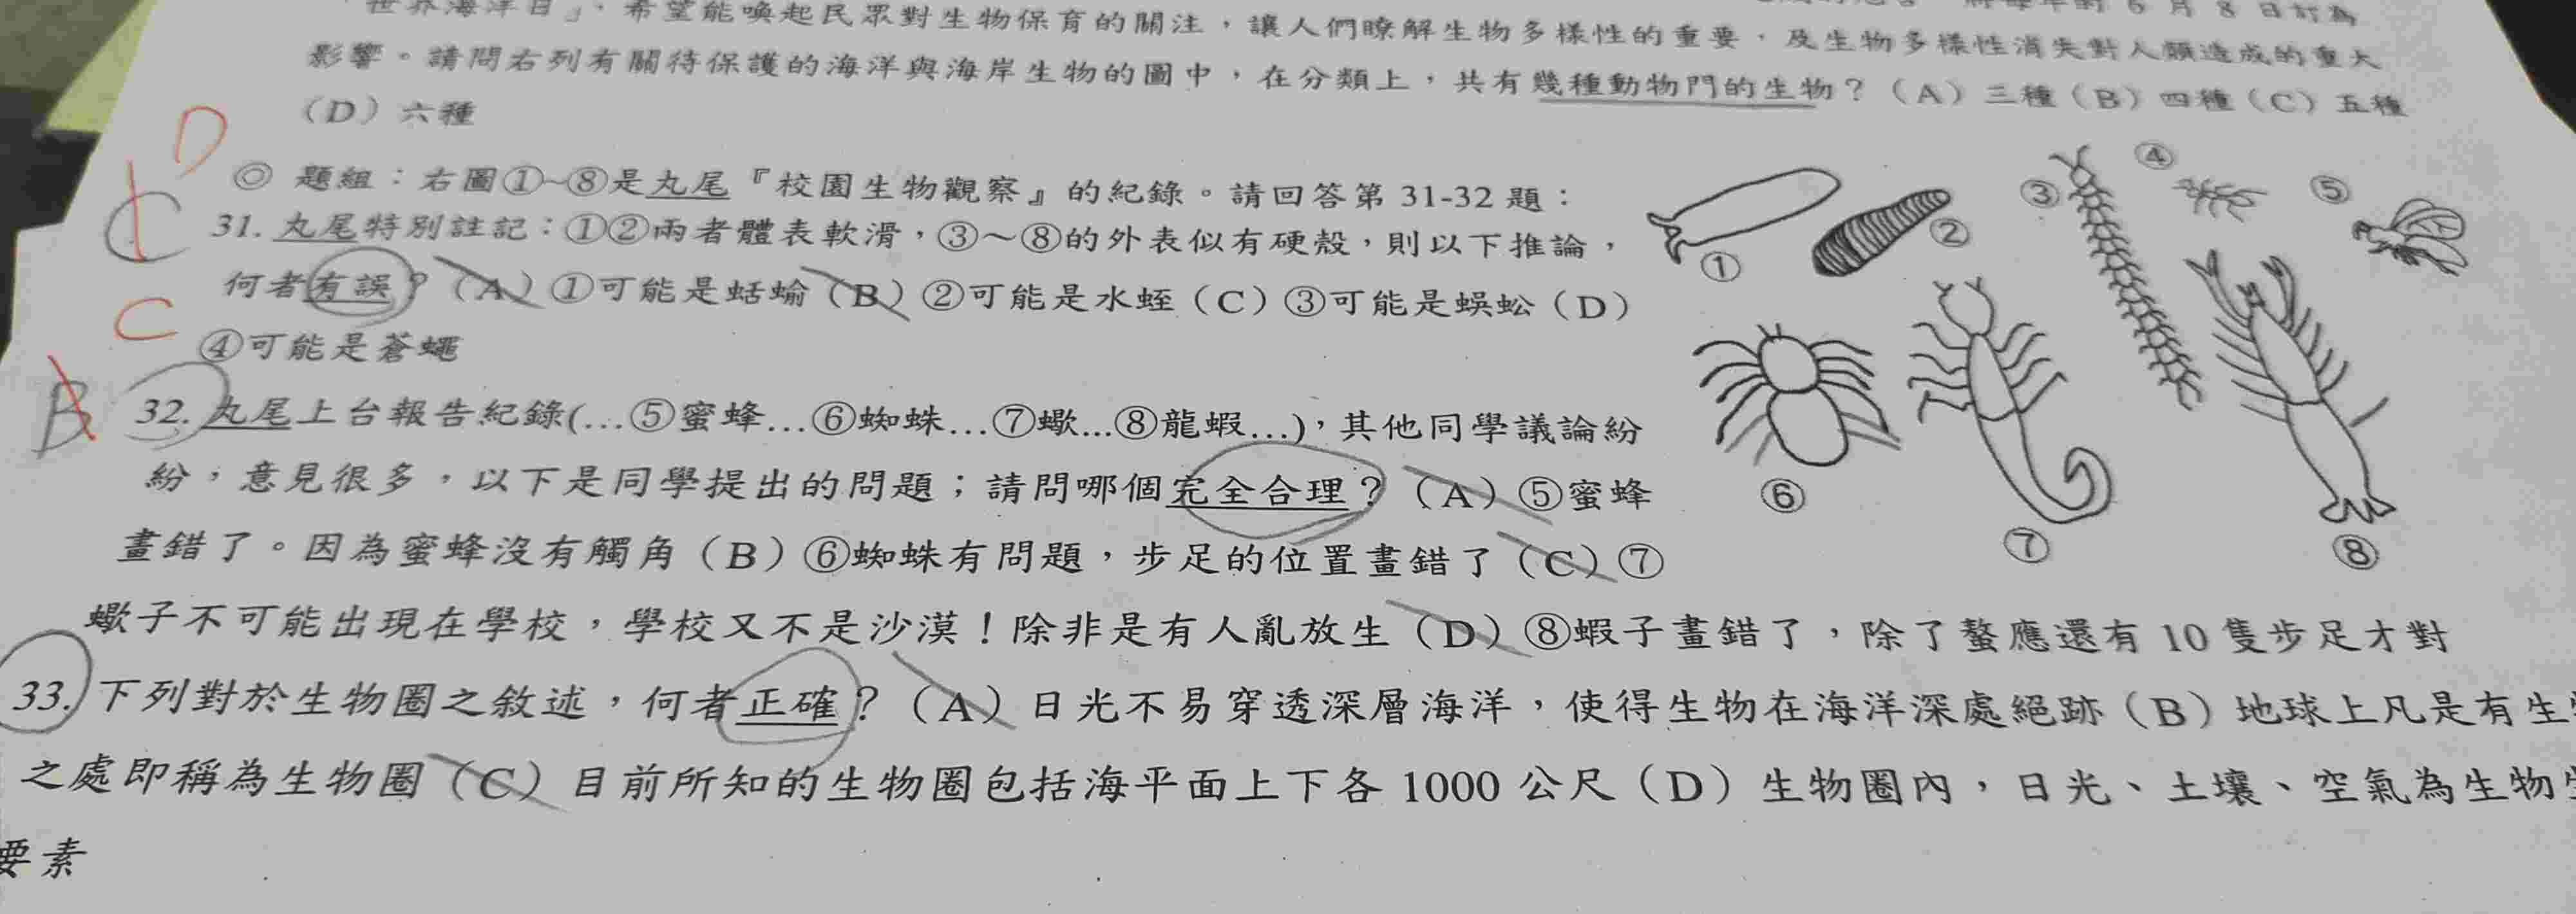 世界海洋日」，希望能喚起民眾對生物保育的關注，讓人們瞭解生物多樣性的重要，及生物多樣性消失對人類造成的重大
6 月 8 日訂為
影響。請問右列有關待保護的海洋與海岸生物的圖中，在分類上，共有幾種動物門的生物？（A）三種（B）四種（C）五種
（D）六種
D
◎ 題組：右圖①~⑧是丸尾『校園生物觀察』的紀錄。請回答第 31-32 題：
C
31. 丸尾特別註記：①②兩者體表軟滑，③～⑧的外表似有硬殼，則以下推論，
何者有誤？（A）①可能是蛞蝓（B）②可能是水蛭（C）③可能是蜈蚣（D）
④可能是蒼蠅
① ② ③ ④ ⑤ ⑥ ⑦ ⑧
C
B
32. 丸尾上台報告紀錄(…⑤蜜蜂…⑥蜘蛛…⑦蠍...⑧龍蝦…)，其他同學議論紛
紛，意見很多，以下是同學提出的問題；請問哪個完全合理？（A）⑤蜜蜂
畫錯了。因為蜜蜂沒有觸角（B）⑥蜘蛛有問題，步足的位置畫錯了（C）⑦
蠍子不可能出現在學校，學校又不是沙漠！除非是有人亂放生（D）⑧蝦子畫錯了，除了螯應還有 10 隻步足才對
33. 下列對於生物圈之敘述，何者正確？（A）日光不易穿透深層海洋，使得生物在海洋深處絕跡（B）地球上凡是有生
之處即稱為生物圈（C）目前所知的生物圈包括海平面上下各 1000 公尺（D）生物圈內，日光、土壤、空氣為生物
要素